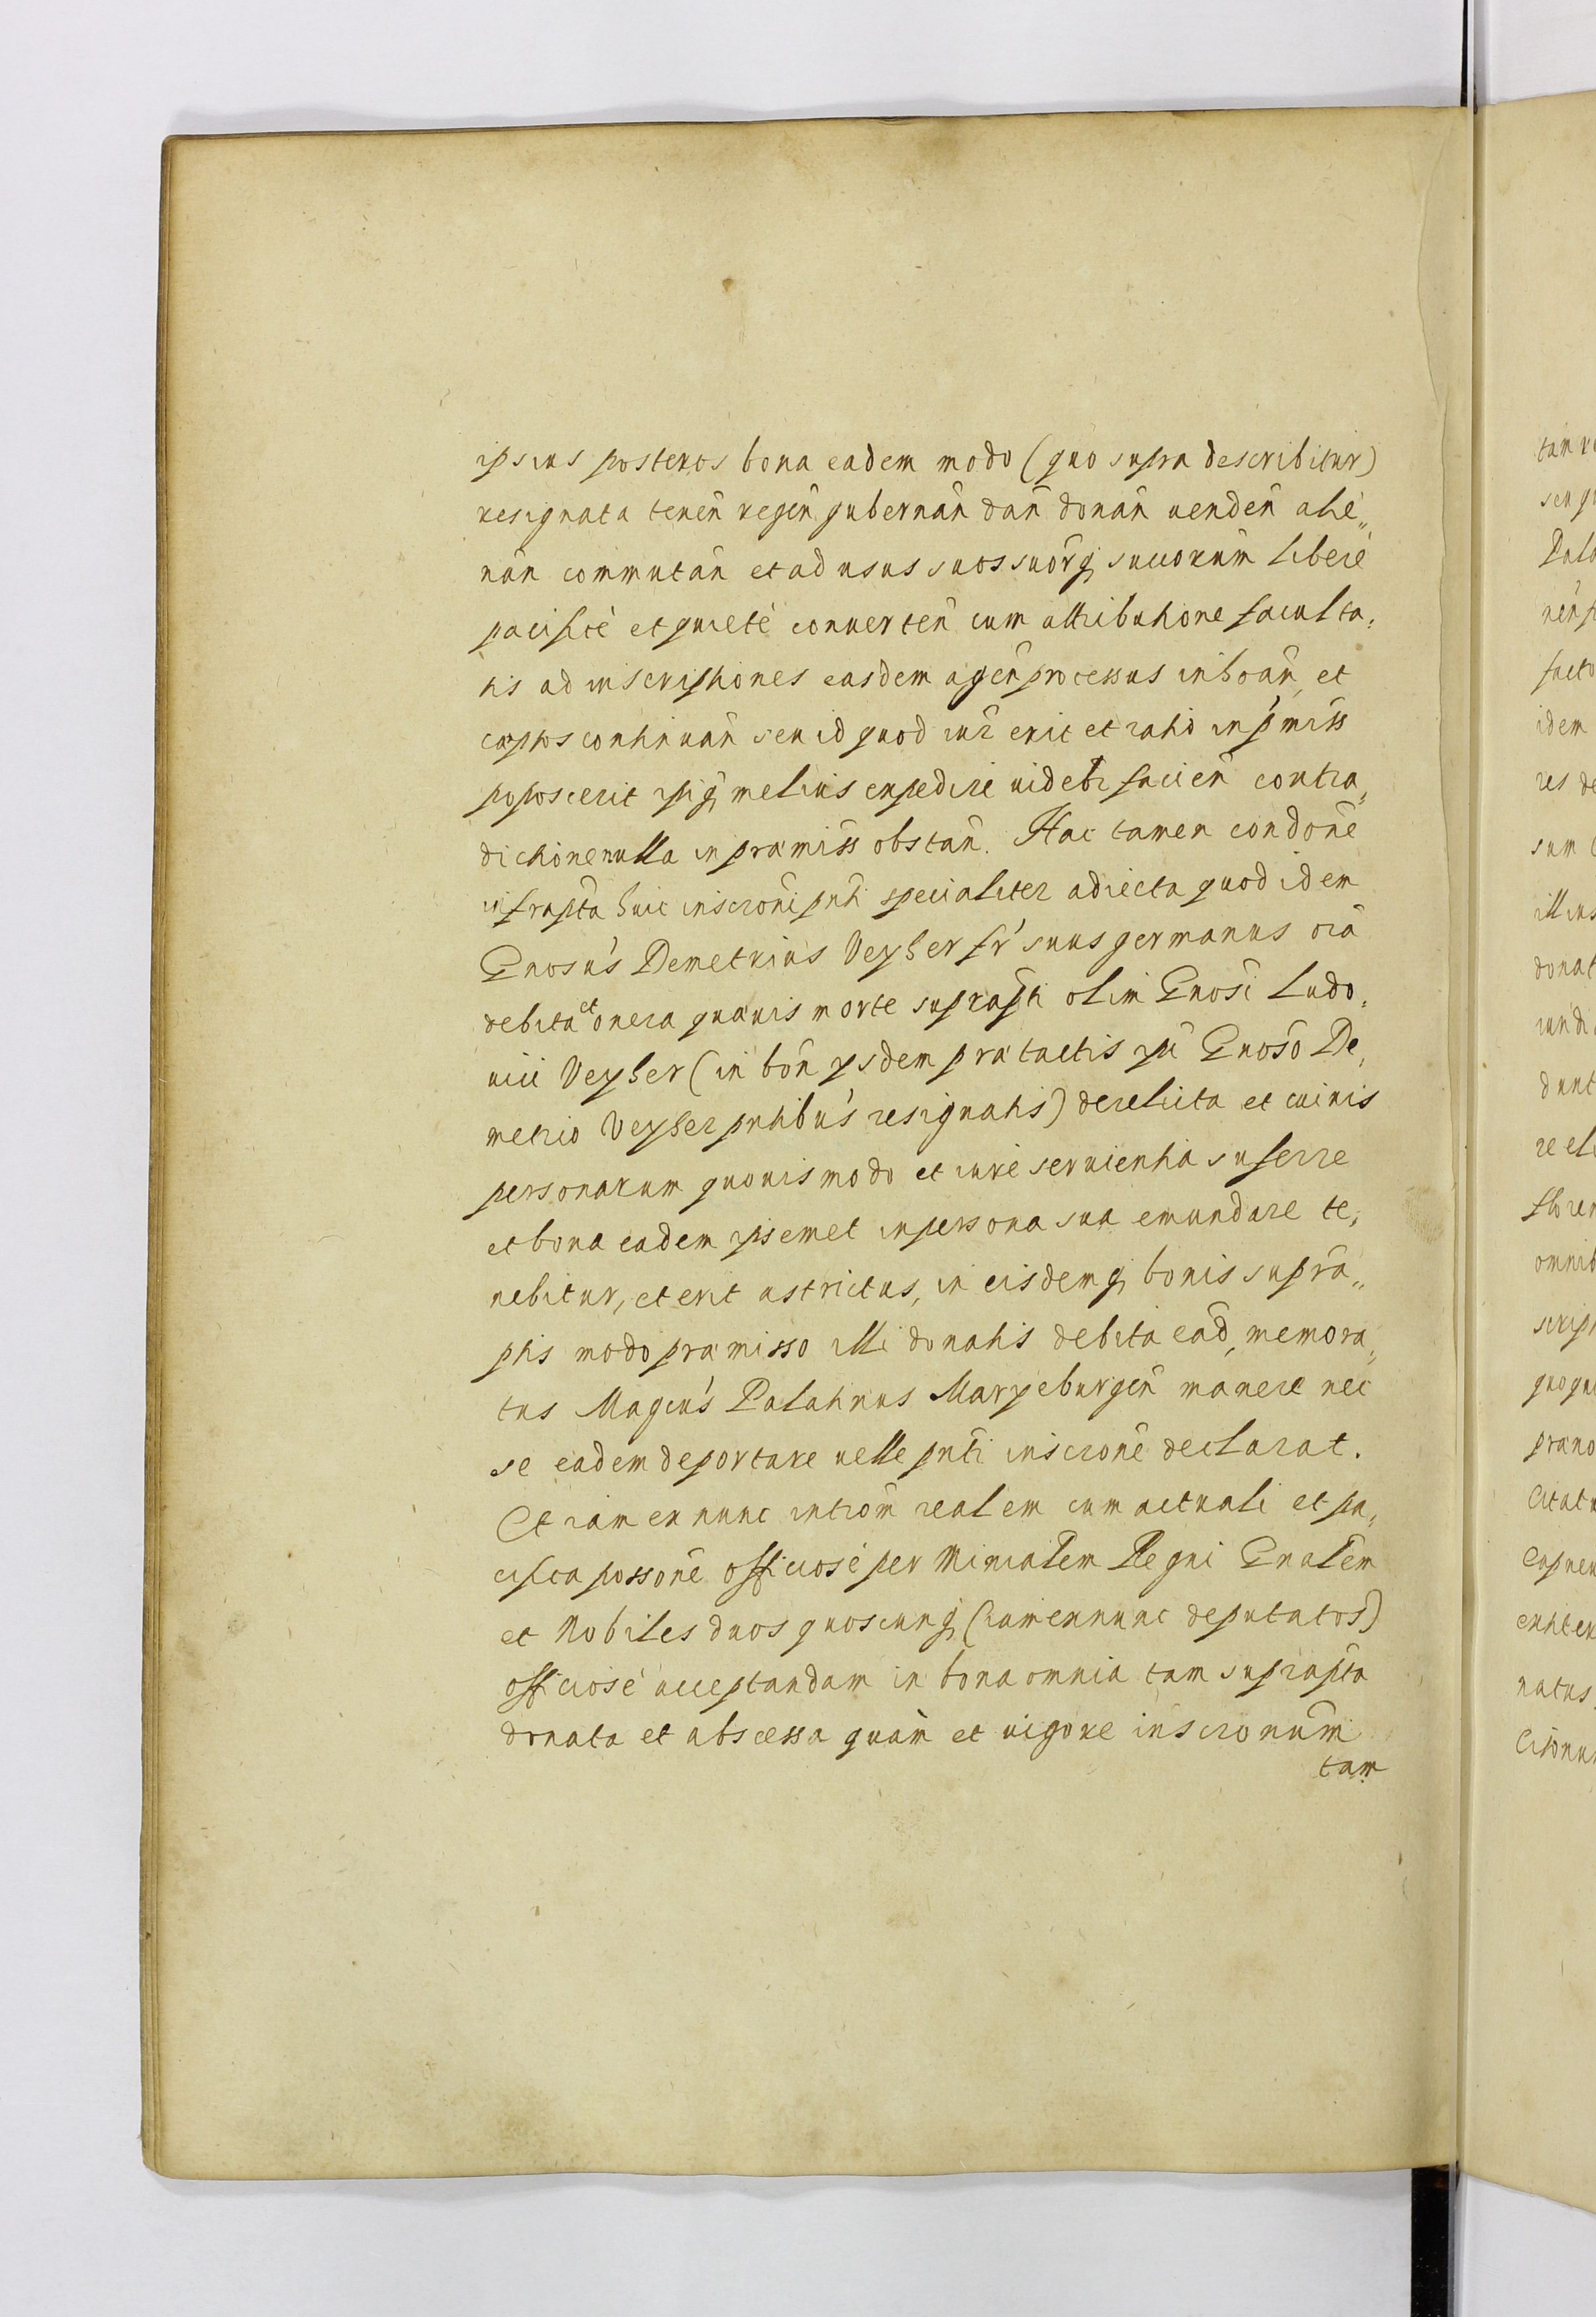 ipsius posteros bona eadem modo (quo supra describitur)
resignata tenen̄ regen̄ gubernan̄ dan̄ donan̄ uenden̄ alie„
nan̄ commutan̄ et ad usus suos suorq́ succorum liberè
pacificè et quietè conuerten̄ cum attributione faculta,
tis ad inscriptiones easdem agen̄ processus inhoan̄, et
captos continuan̄ seu id quod iur̄ erit et ratio in ṕmiss̄
poposcerit ipiq́ melius expedire uidebr̄ facien̄ contra„
dictione nulla in præmiss̄ obstan̄. Hac tamen condōne
infrapta huic inscrōni pn̄ti specialiter adiecta quod idem
Gnosus Demetrius Veyher fr̄ suus germanus oīa
debita et onera quæuis morte suprap̄ti olim Gnosi Ludo,
uici Veyher (in bon̄ ysdem prætactis ipī Gnoso De,
metrio Veyher pn̄tibus resignatis) derelicta et cuiuis
personarum quouis modo et iure seruientia sufferre
et bona eadem ipsemet in persona sua emundare te,
nebitur, et erit astrictus, in eisdemq́ bonis supra„
ptis modo præmisso illi donatis debita ead, memora„
tus Magcus Palatinus Maryeburgen̄ manere nec
se eadem deportare uelle pn̄ti inscrōne declarat.
Et iam ex nunc introm̄ realem cum actuali et pa,
cifica possōne officiosè per Minialem Regni Gnalem
et Nobiles duos quoscunq́ (iam ex nunc deputatos)
officiosè acceptandam in bona omnia tam suprapta
donata et abscessa quàm et uigore inscrōnum
tam